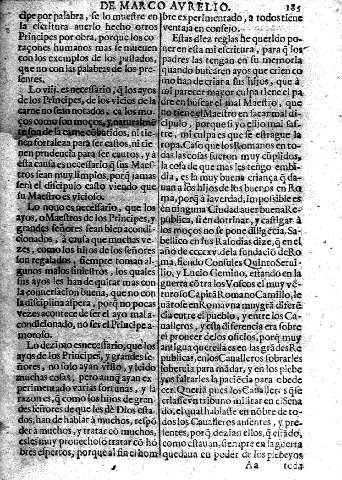 DE MARCO AVRELIO. 185
cipe por palabra, se lo muestre en
la escritura auerlo hecho otros
Principes por obra, porque los co-
raçones humanos mas se mueuen
con los exemplos de los passados,
que no con las palabras de los pre-
sentes.
Lo viii. es necessario, q̃ los ayos
de los Principes, de los vicios de la
carne no sean notados, ca los mo-
ços como son moços, y naturalmẽ
te son de la carne cõbatidos, ni tie-
nen fortaleza para ser castos, ni tie-
nen prudencia para ser cautos, y á
esta causa es necessario q̃ sus Maes-
tros sean muy limpios, porq̃ jamas
será el discipulo casto viendo que
su Maestro es vicioso.
Lo nono es necessario, que los
ayos, o Maestros de los Principes, y
grandes señores sean bien acondi-
cionados, á causa que muchas ve-
zes, como los hijos de los señores
son regalados, siempre toman al-
gunos malos siniestros, los quales
sus ayos les han de quitar mas con
la conuersacion buena, que no con
la disciplina aspera, porq̃ no pocas
vezes acontece de ser el ayo mal a-
condicionado, no ser el Principe a-
moroso.
Lo dezimo es necessario, que los
ayos de los Principes, y grandes se-
ñores, no solo ayan visto, y leido
muchas cosas, pero aun ayan ex-
perimentado varias fortunas, y la
razones, q̃ como los hijos de gran-
des señores de que les dè Dios esta-
dos, han de hablar á muchos, respõ
der á muchos, y tratar cõ muchos,
es les muy prouechoso tratar cõ hõ
bres espertos, porque al fin el hom
bre experimentado, a todos tiene
ventaja en consejo.
Estas diez reglas he querido po-
ner en esta mi escritura, para q̃ los
padres las tengan en su memoria
quando buscaren ayos que crien co
mo han de criar a sus hijos, que à
mi parecer mayor culpa tiene el pa
dre en buscar el mal Maestro, que
no tiene el Maestro en sacar mal di-
cipulo, porque si yo elijo mal sas-
tre, mi culpa es que se estrague la
ropa. Caso que los Romanos en to-
das las cosas fueron muy cũplidos,
la cosa de que mas les tengo embi-
dia, es la muy buena criança q̃ da-
uan a los hijos de los buenos en Ro
ma, porq̃ à la verdad, impossible es
en ninguna Ciudad auer buena Re-
publica, si en dotrinar, y castigar á
los moços no se pone diligẽcia. Sa-
bellico en sus Rasodias dize, q̃ en el
año de cccxv. de la fundaciõ de Ro-
ma, siendo Consules Quinto Serui-
lio, y Lucio Gemino, estando en la
guerra cõtra los Voscos el muy vẽ-
turoso Capitã Romano Camillo, le
uãtose en Roma vna muy grã diferẽ
cia entre el pueblo, y entre los Ca-
ualleros, y esta diferencia era sobre
el proueer de los oficios, porq̃ muy
antigua querella es en las grãdes Re
publicas, en los Caualleros sobrarles
soberuia para mãdar, y en los plebe
yos faltarles la paciẽcia para obede
cer. Queriã pues los Caualleros q̃ se
criasse vn tribuno militar en el Sena
do, el qual hablasse en nõbre de to-
dos los Caualleros ausentes, y pre-
sentes, porq̃ dezian ellos, q̃ el rado,
como estauan, siempre en la guerra
quedaua en poder de los plebeyos
Aa toda